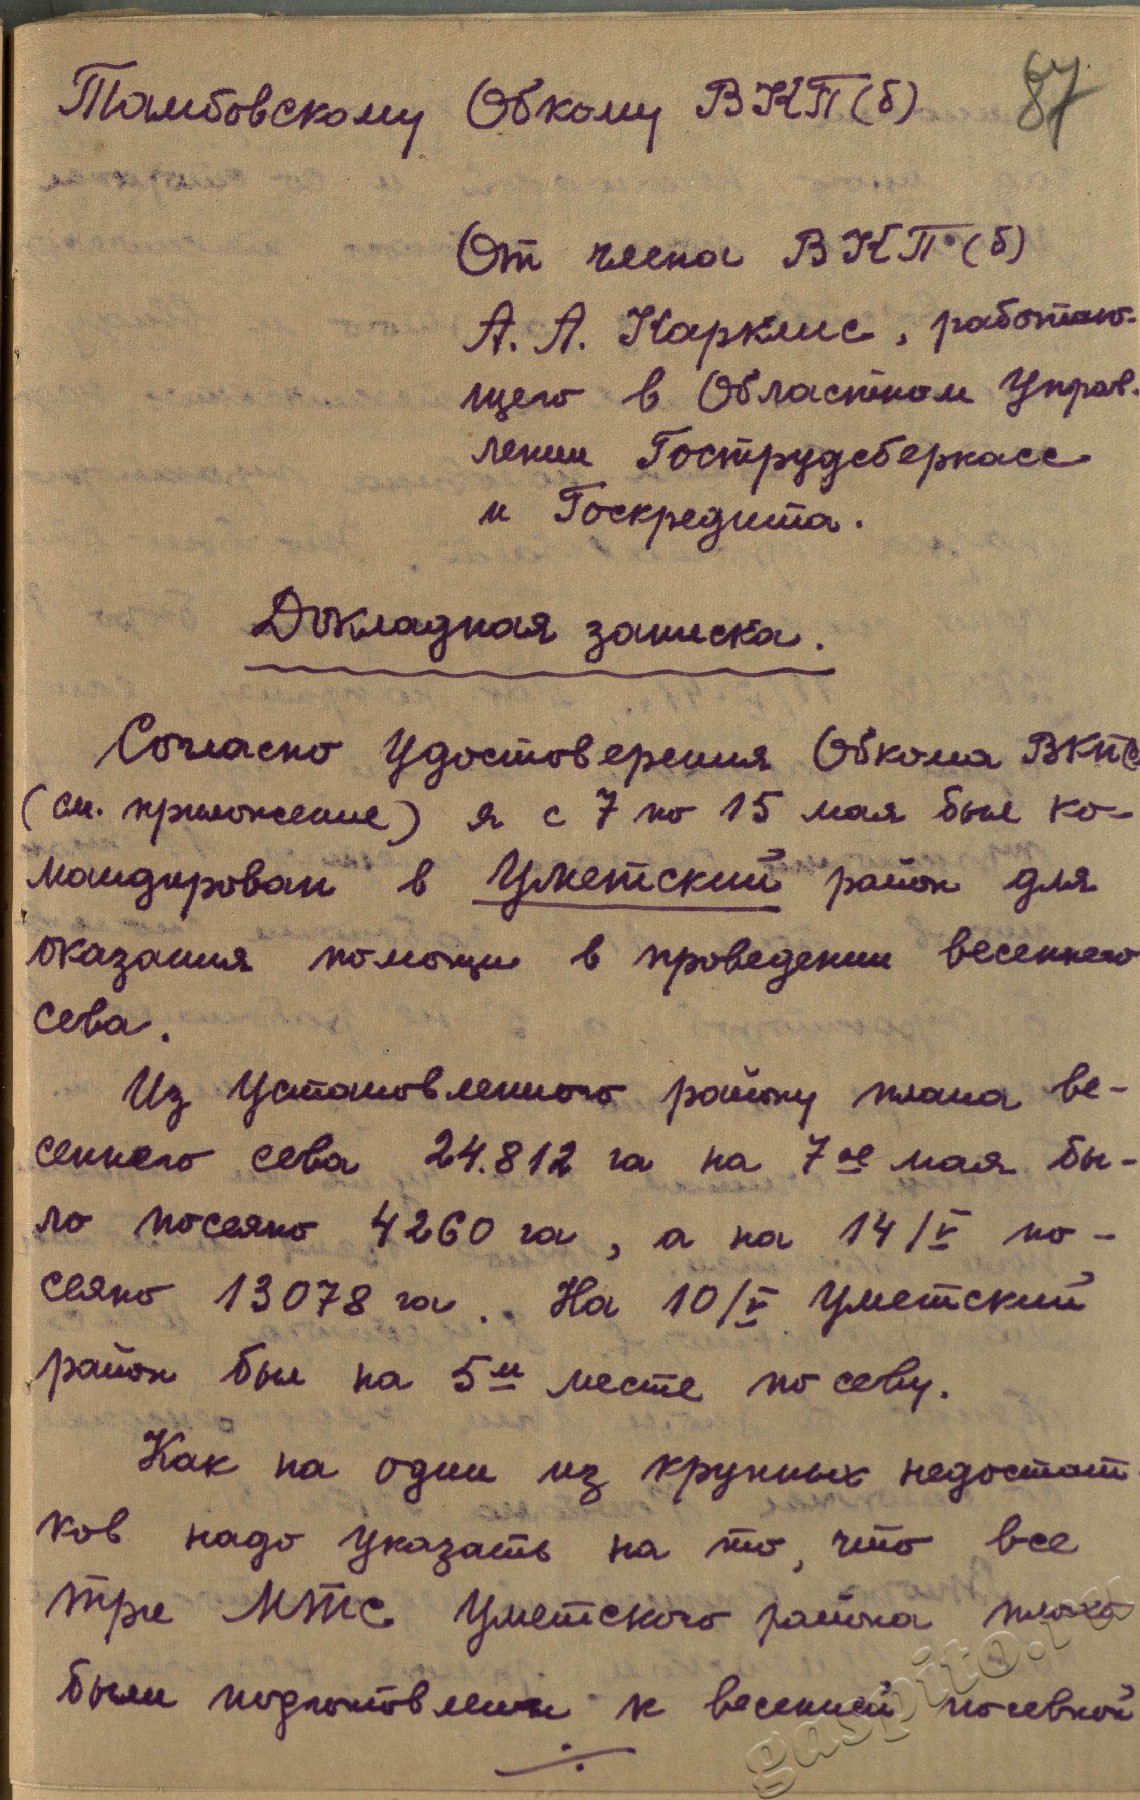 87
Тамбовскому Обкому ВКП(б)
От члена ВКП(б)
А. А. Карклис, работаю-
щего в Областном Управ-
лении Гострудсберкасс
и Госкредита.
Докладная записка.
Согласно Удостоверения Обкома ВКП(б)
(см. приложение) я с 7 по 15 мая был ко-
мандирован в Уметский район для
оказания помощи в проведении весеннего
сева.
Из установленного району плана ве-
сеннего сева 24.812 га на 7ое мая бы-
ло посеяно 4260 га, а на 14/V по-
сеяно 13078 га. На 10/V Уметский
район был на 5м месте по севу.
Как на один из крупных недостат-
ков надо указать на то, что все
три МТС Уметского района плохо
были подготовлены к весенней посевной
gaspito.ru